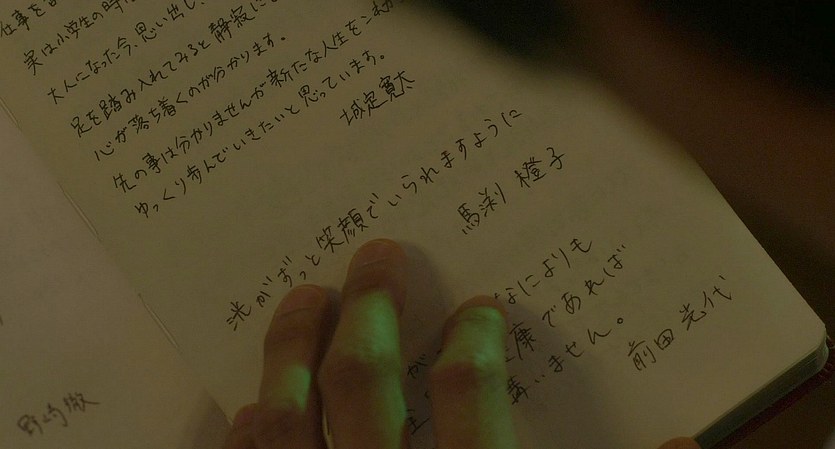 仕事を
実は小学生の時に
大人になった今、思い出し、
足を踏み入れてみると静寂に
心が落ち着くのが分かります。
先の事は分かりませんが新たな人生を
ゆっくり歩んでいきたいと思っています。
城定寛太
洸がずっと笑顔でいられますように
馬渕 橙子
なによりも
が 康であれば
構いません。
前田 光代
野崎徹